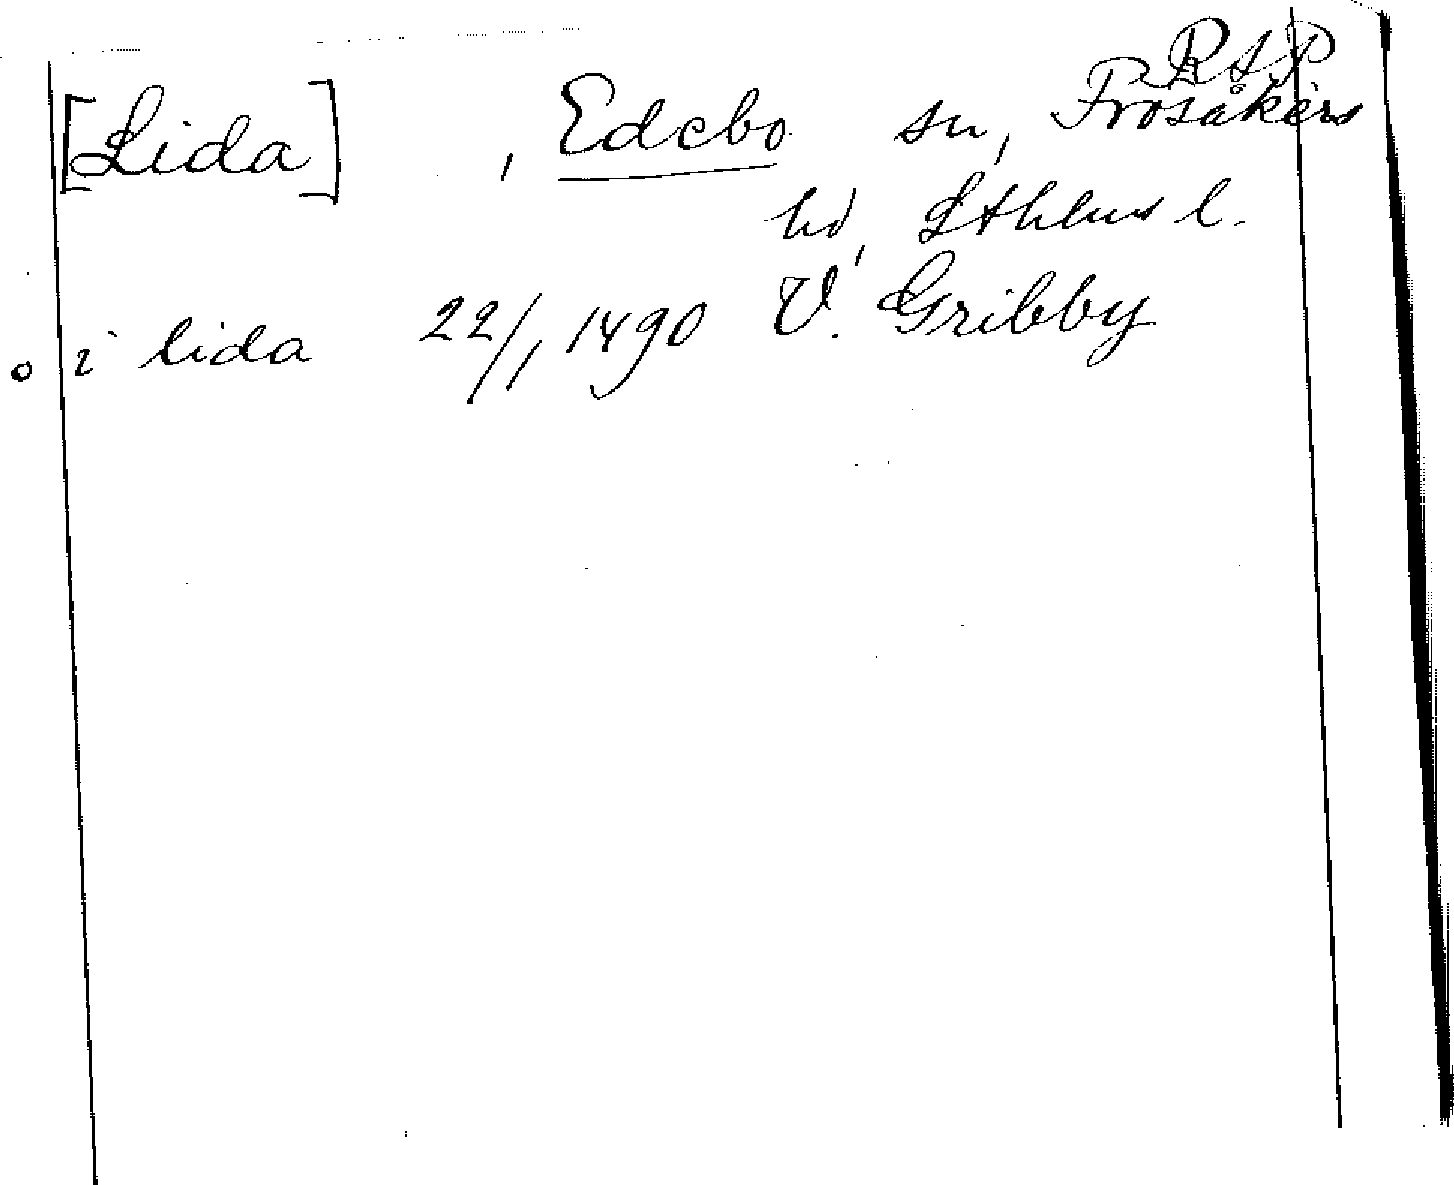 RAP
[Lida] , Edebo sn, Frösåkers
hd, Sthlms l.
o i lida 22/1 1490 V. Gribby